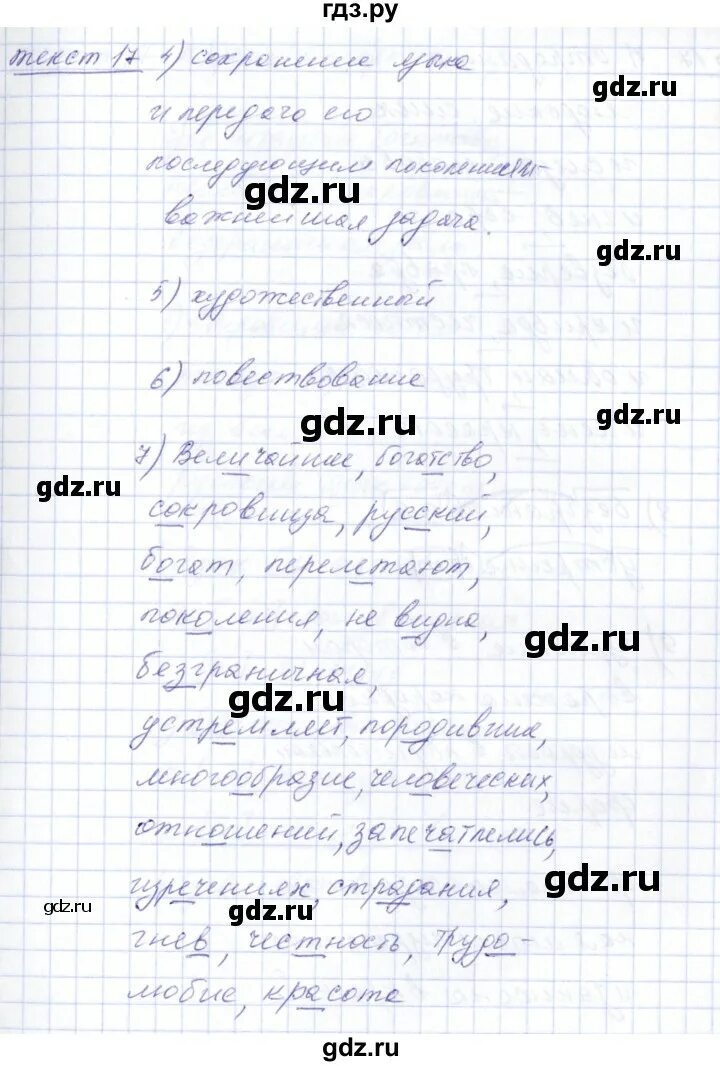 гдз.ру
текст 17 4) сохранение языка
и передача его
gdz.ru
последующим поколениям-
gdz.ru
важнейшая задача.
gdz.ru
5) художественный
6) повествование
gdz.ru
gdz.ru
7) Величайшее, богатство,
gdz.ru
сокровища, русский,
богат, перелетают,
поколения, не видна,
gdz.ru
безграничная,
gdz.ru
устремляет, породивших,
многообразие, человеческих,
отношений, запечатлелись,
изречениях, страдания,
gdz.ru
gdz.ru
gdz.ru
гнев, честность, трудо-
любие, красота
gdz.ru